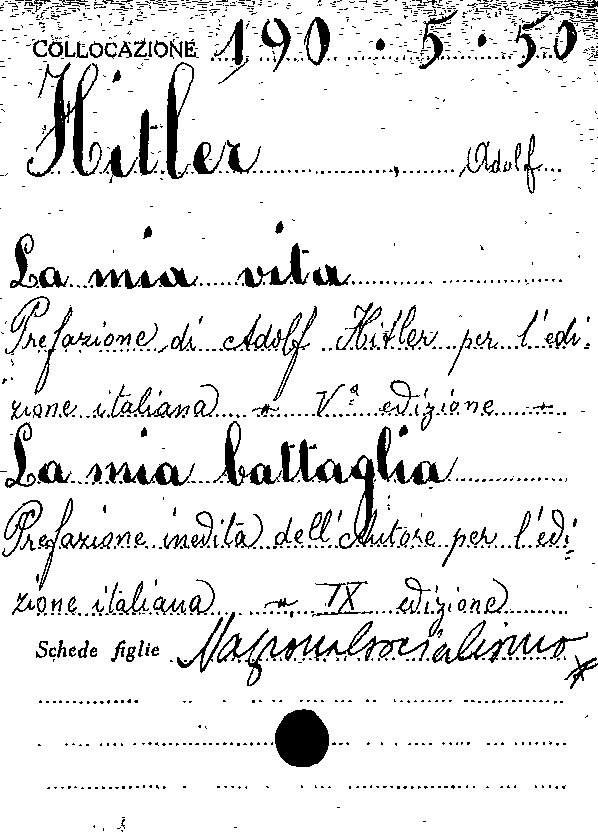 COLLOCAZIONE 190 · 5 · 50
Hitler , Adolf
La mia vita
Prefazione di Adolf Hitler per l'edi-
zione italiana - Vª edizione -
La mia battaglia
Prefazione inedita dell'Autore per l'edi-
zione italiana - IX edizione
Schede figlie Nazionalsocialismo